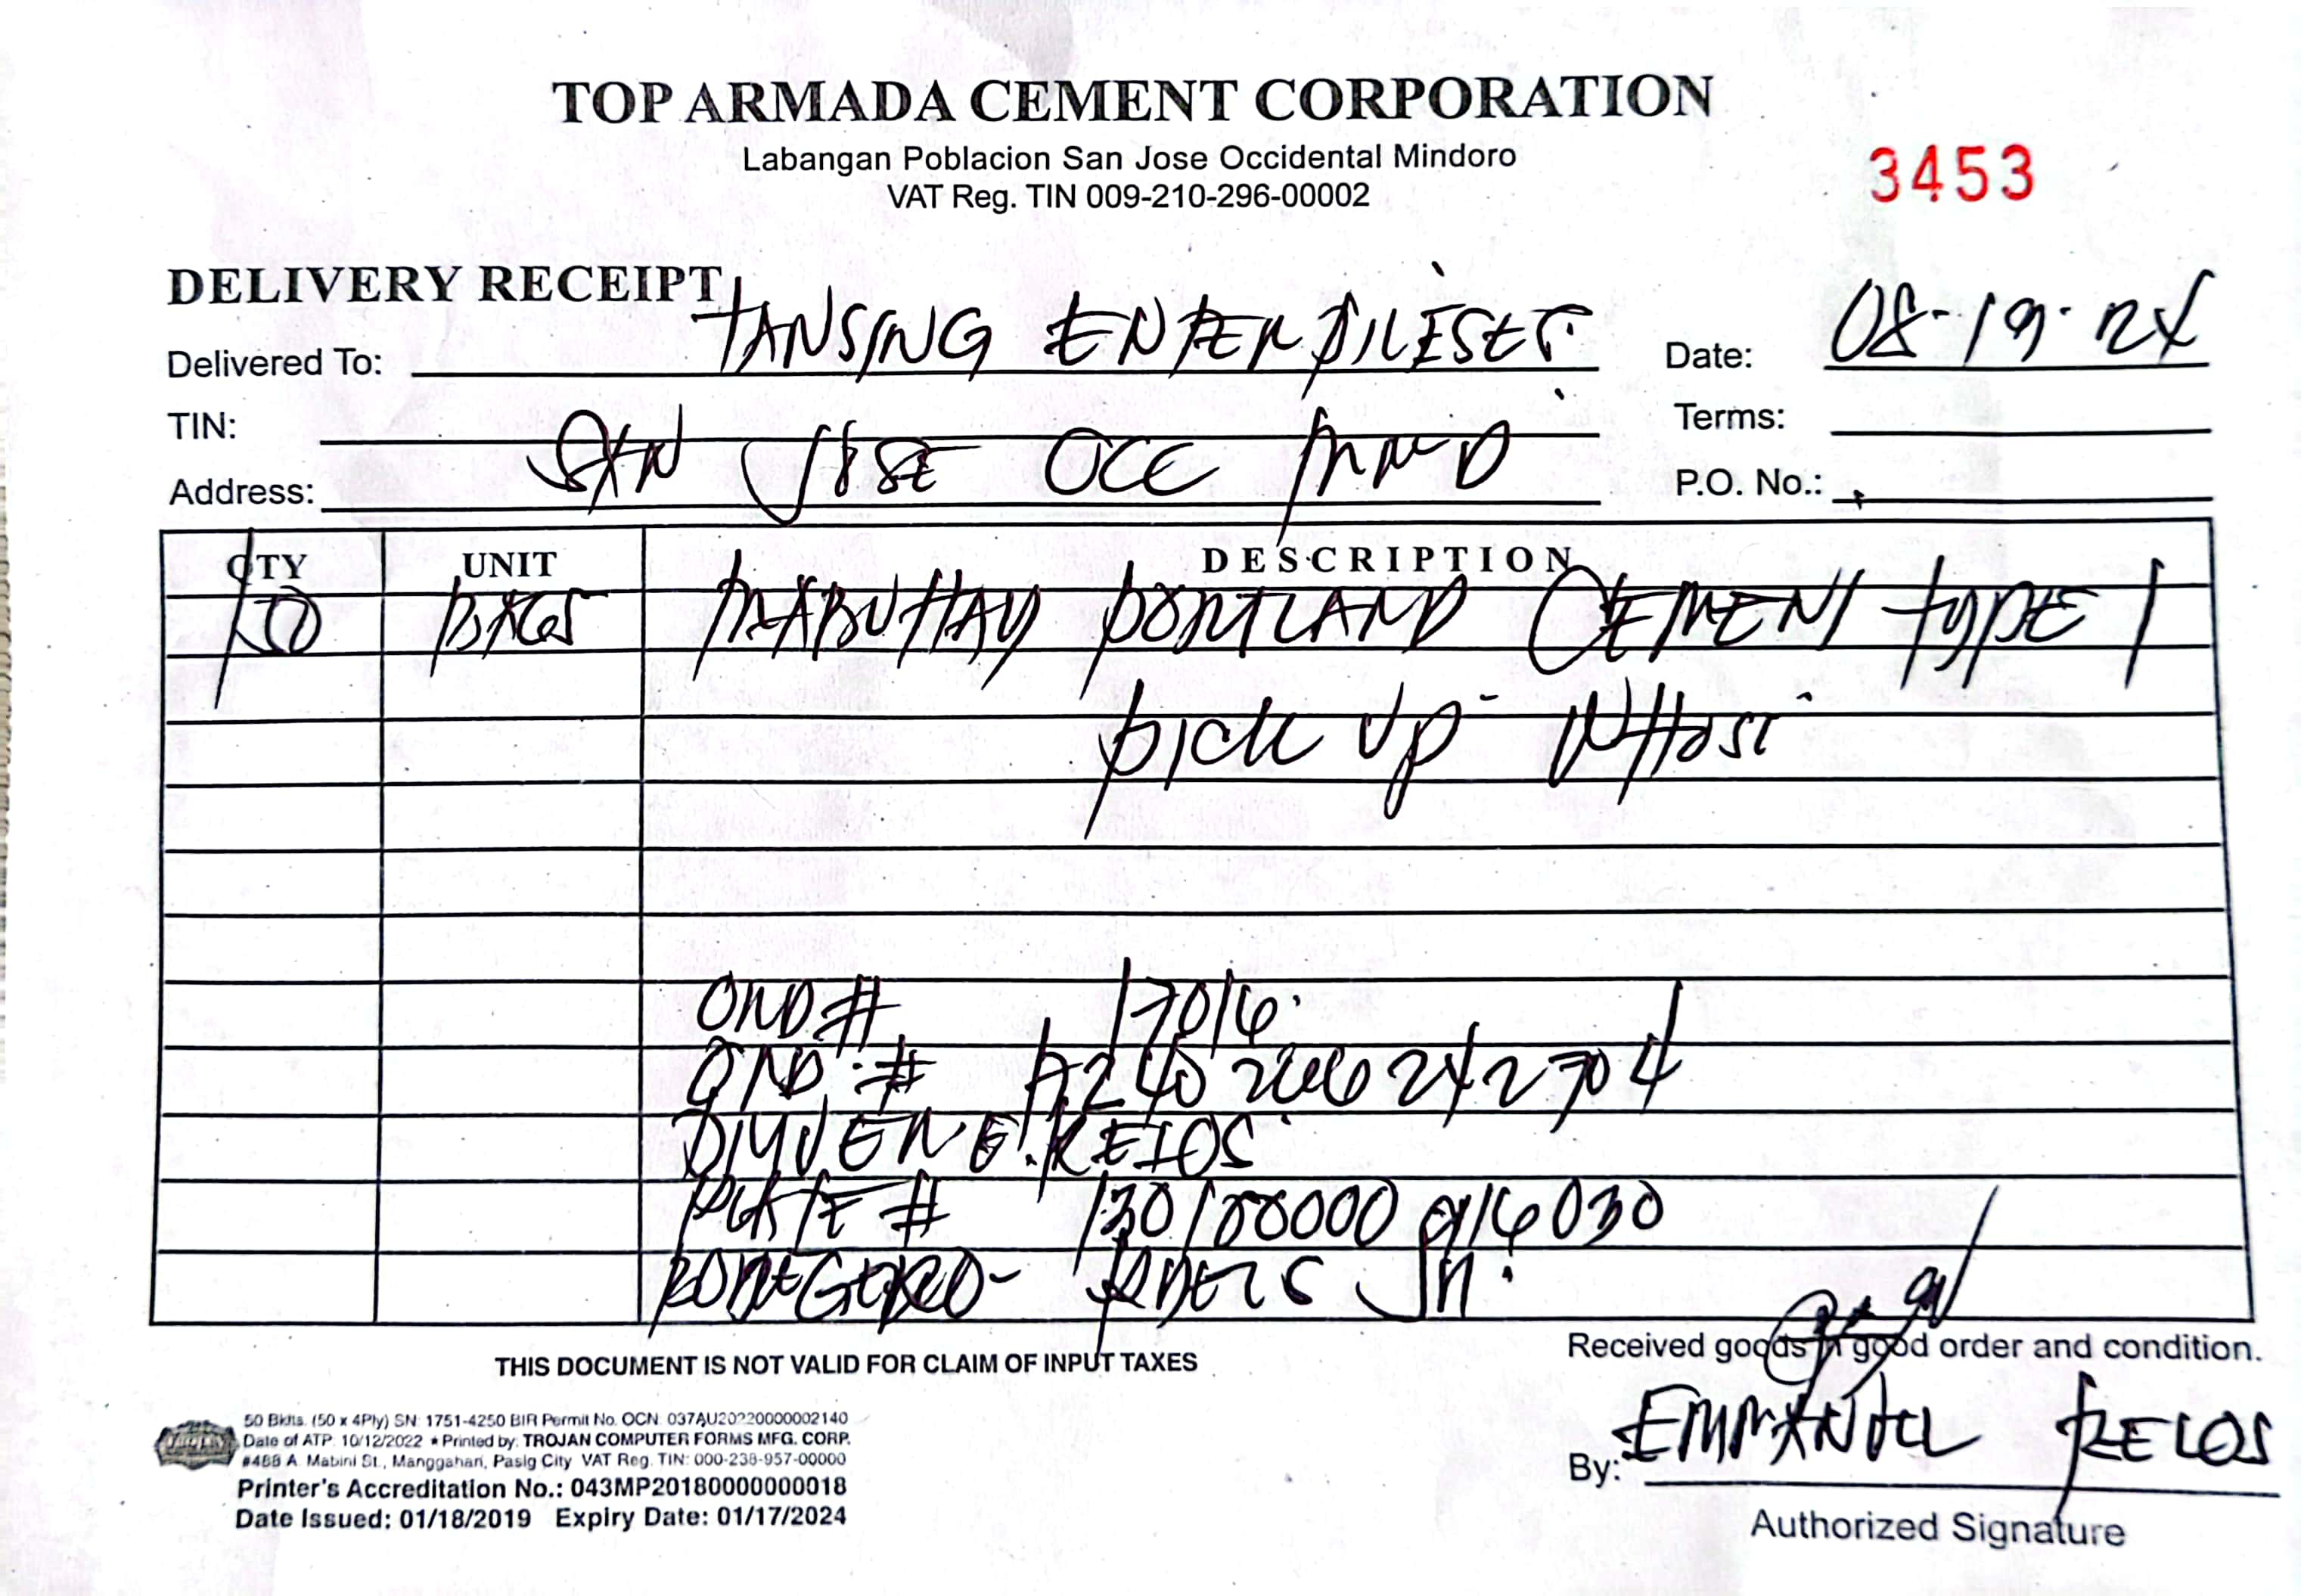 TOP ARMADA CEMENT CORPORATION
Labangan Poblacion San Jose Occidental Mindoro
VAT Reg. TIN 009-210-296-00002
3453
DELIVERY RECEIPT
Delivered To: TANSING ENTERPRISES Date: 08-19-24
TIN: Terms:
Address: SAN JOSE OCC MND P.O. No.:
QTY UNIT DESCRIPTION
BAGS MABUHAY PORTLAND CEMENT TYPE 1
PICK UP
ORD # 17016
# 2704
E. RELOS
PLATE # 1301
BODEGERO- JR.
THIS DOCUMENT IS NOT VALID FOR CLAIM OF INPUT TAXES
Received goods in good order and condition.
By: EMMANUEL RELOS
Authorized Signature
50 Bklts. (50 x 4Ply) SN: 1751-4250 BIR Permit No. OCN: 037AU20220000002140
Date of ATP: 10/12/2022 • Printed by: TROJAN COMPUTER FORMS MFG. CORP.
#468 A. Mabini St., Manggahan, Pasig City VAT Reg. TIN: 000-238-957-00000
Printer's Accreditation No.: 043MP20180000000018
Date Issued: 01/18/2019 Expiry Date: 01/17/2024